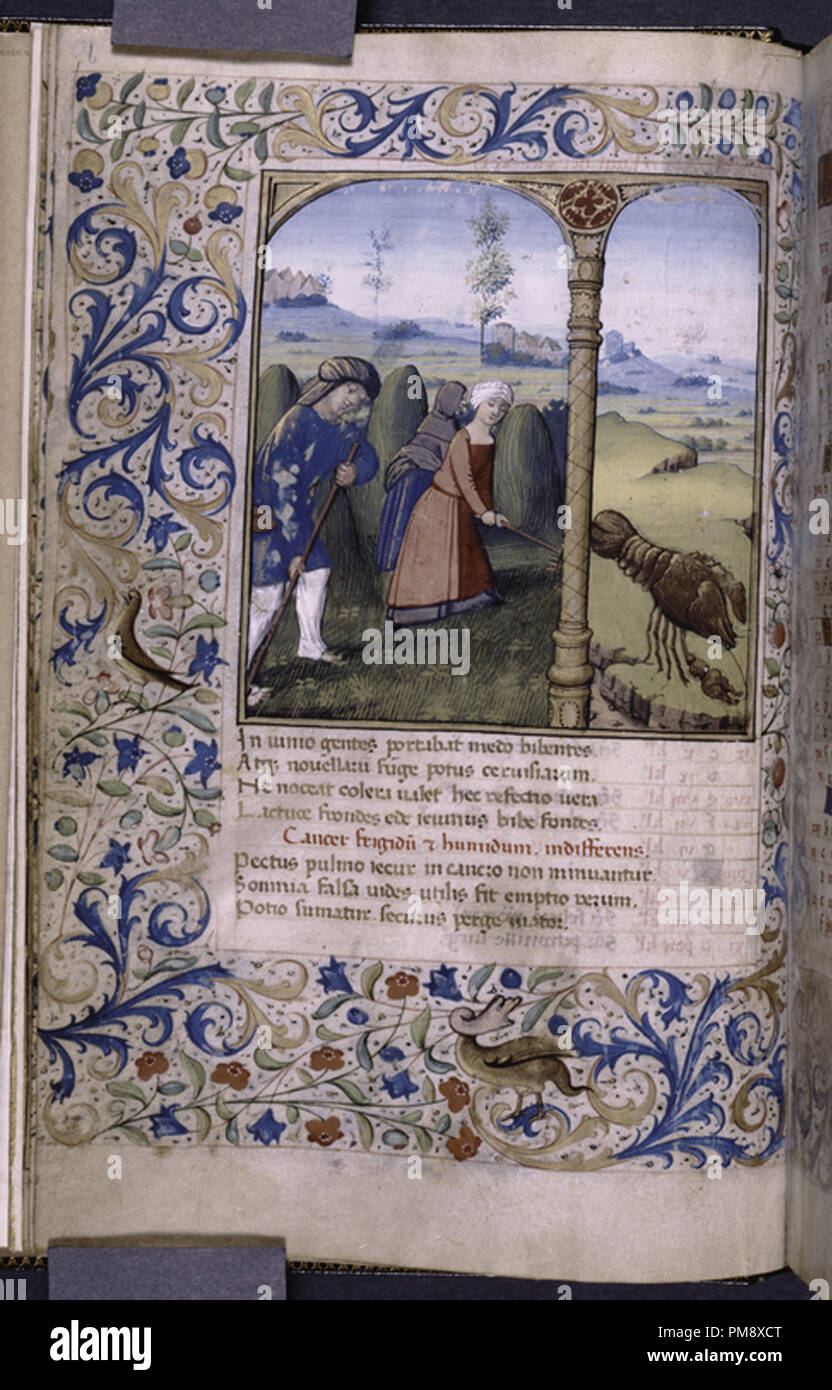 In iunio gentes portabat medo bibentes.
Atqz novellarū fuge potus ceruisiarum.
Ne noceat colera ualet hec refectio uera
Lactuce frondes ede ieiunus bibe fontes.
Cancer frigidū ⁊ humidum. indifferens.
Pectus pulmo iecur in cancro non minuantur.
Somnia falsa uides utilis fit emptio rerum.
Potio sumatur. securus perge uiator.
alamy
Image ID: PM8XCT
www.alamy.com